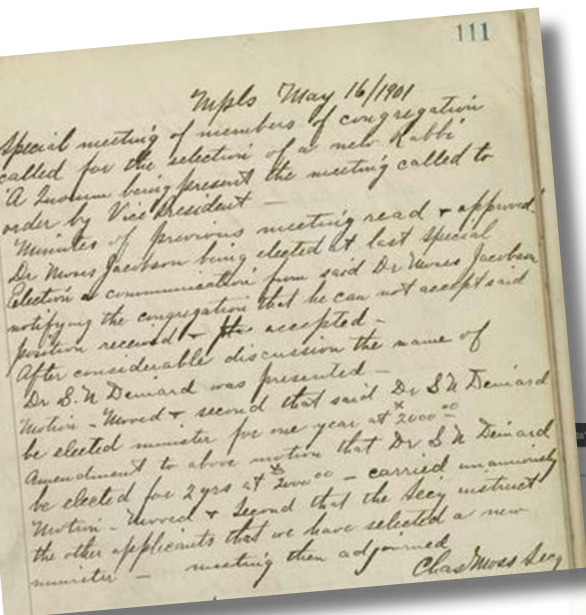 111
Mpls May 16/1901
Special meeting of members of congregation
called for the selection of a new Rabbi
A Quorum being present the meeting called to
order by Vice President —
Minutes of previous meeting read & approved.
Dr Moses Jacobson being elected at last special
Election a communication from said Dr Moses Jacobson
notifying the congregation that he can not accept said
position received & accepted —
After considerable discussion the name of
Dr S. N Deinard was presented —
Motion - Moved & second that said Dr S N Deinard
be elected minister for one year at $2000 00
Amendment to above motion that Dr S N Deinard
be elected for 2 yrs at $2000 00 — carried unanimously
Motion - Moved & Second that the Secy instruct
the other applicants that we have selected a new
minister — meeting then adjourned
Chas Moss Secy